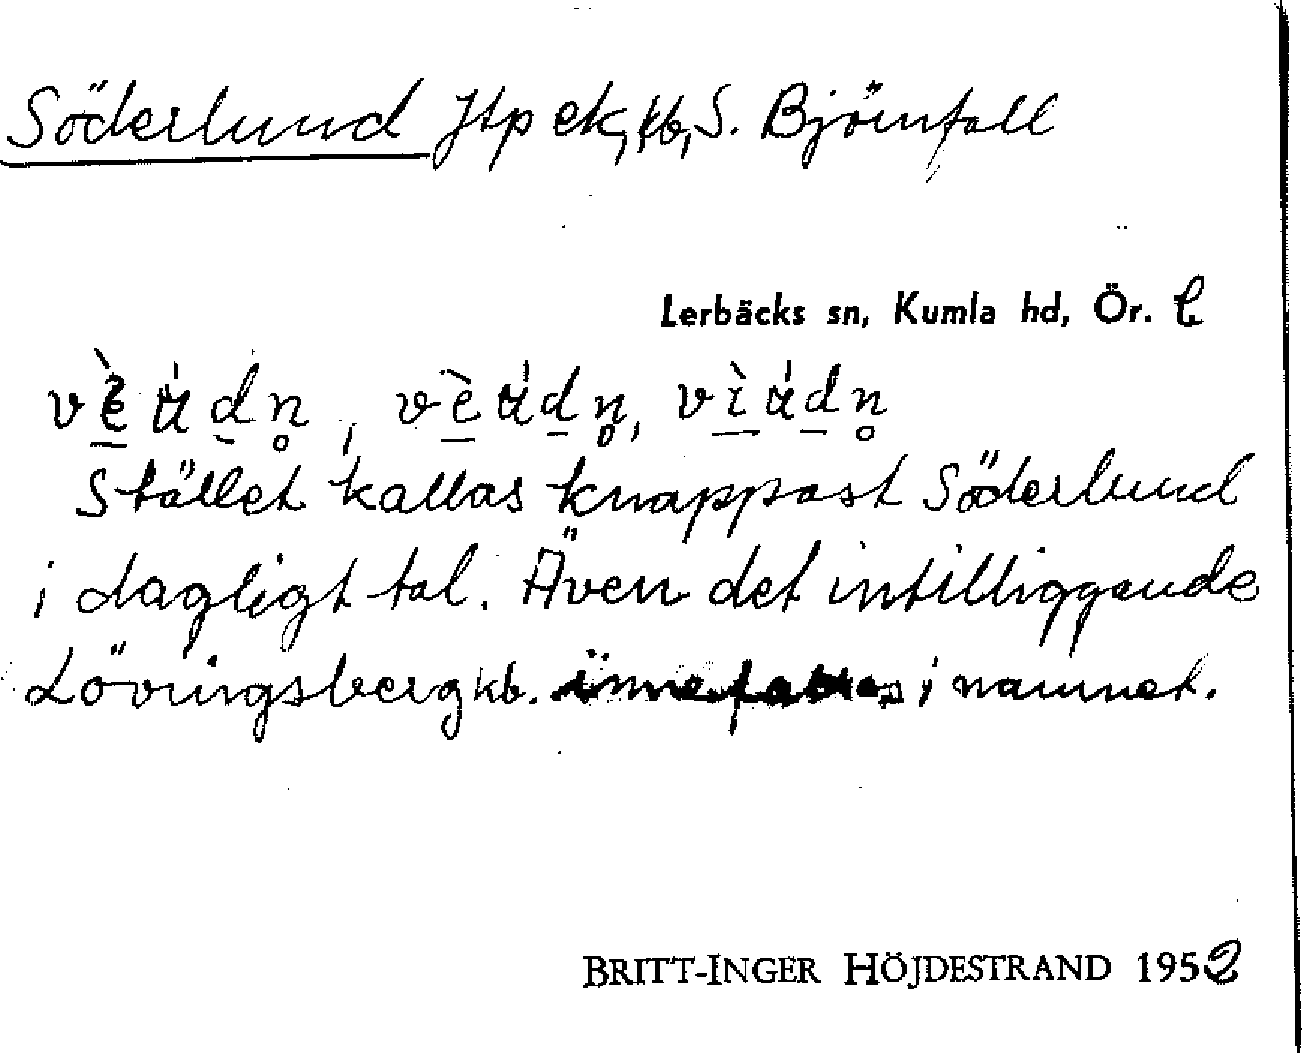 Söderlund Jtp ek, kb, S. Björnfall
Lerbäcks sn, Kumla hd, Ör. l
Stället kallas knappast Söderlund
i dagligt tal. Även det intilliggande
Lövringsberg kb. innefattas i namnet.
BRITT-INGER HÖJDESTRAND 1952